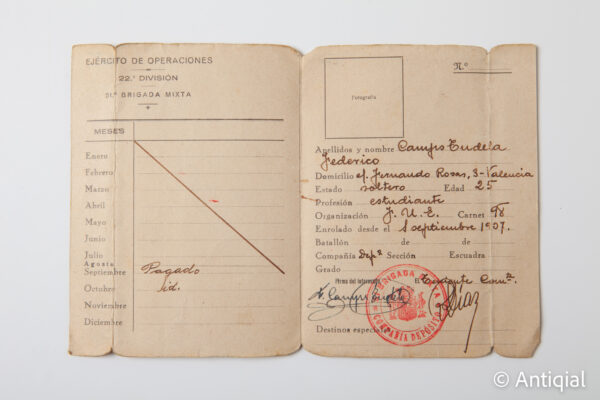 EJÉRCITO DE OPERACIONES
22.ª DIVISIÓN
51.ª BRIGADA MIXTA
MESES
Enero
Febrero
Marzo
Abril
Mayo
Junio
Julio
Agosto
Septiembre Pagado
Octubre id.
Noviembre
Diciembre
N.º
Fotografía
Apellidos y nombre Camps Tudela
Federico
Domicilio c/. Fernando Rosas, 3-Valencia
Estado soltero Edad 25
Profesión estudiante
Organización F. U. E. Carnet 98
Enrolado desde el 1 septiembre 1937.
Batallón de de
Compañía Dep.º Sección Escuadra
Grado
Firma del interesado El Teniente Com.te
F. Camps Tudela Díaz
BRIGADA MIXTA
COMPAÑÍA DEPÓSITO
Destinos especiales
© Antiqial